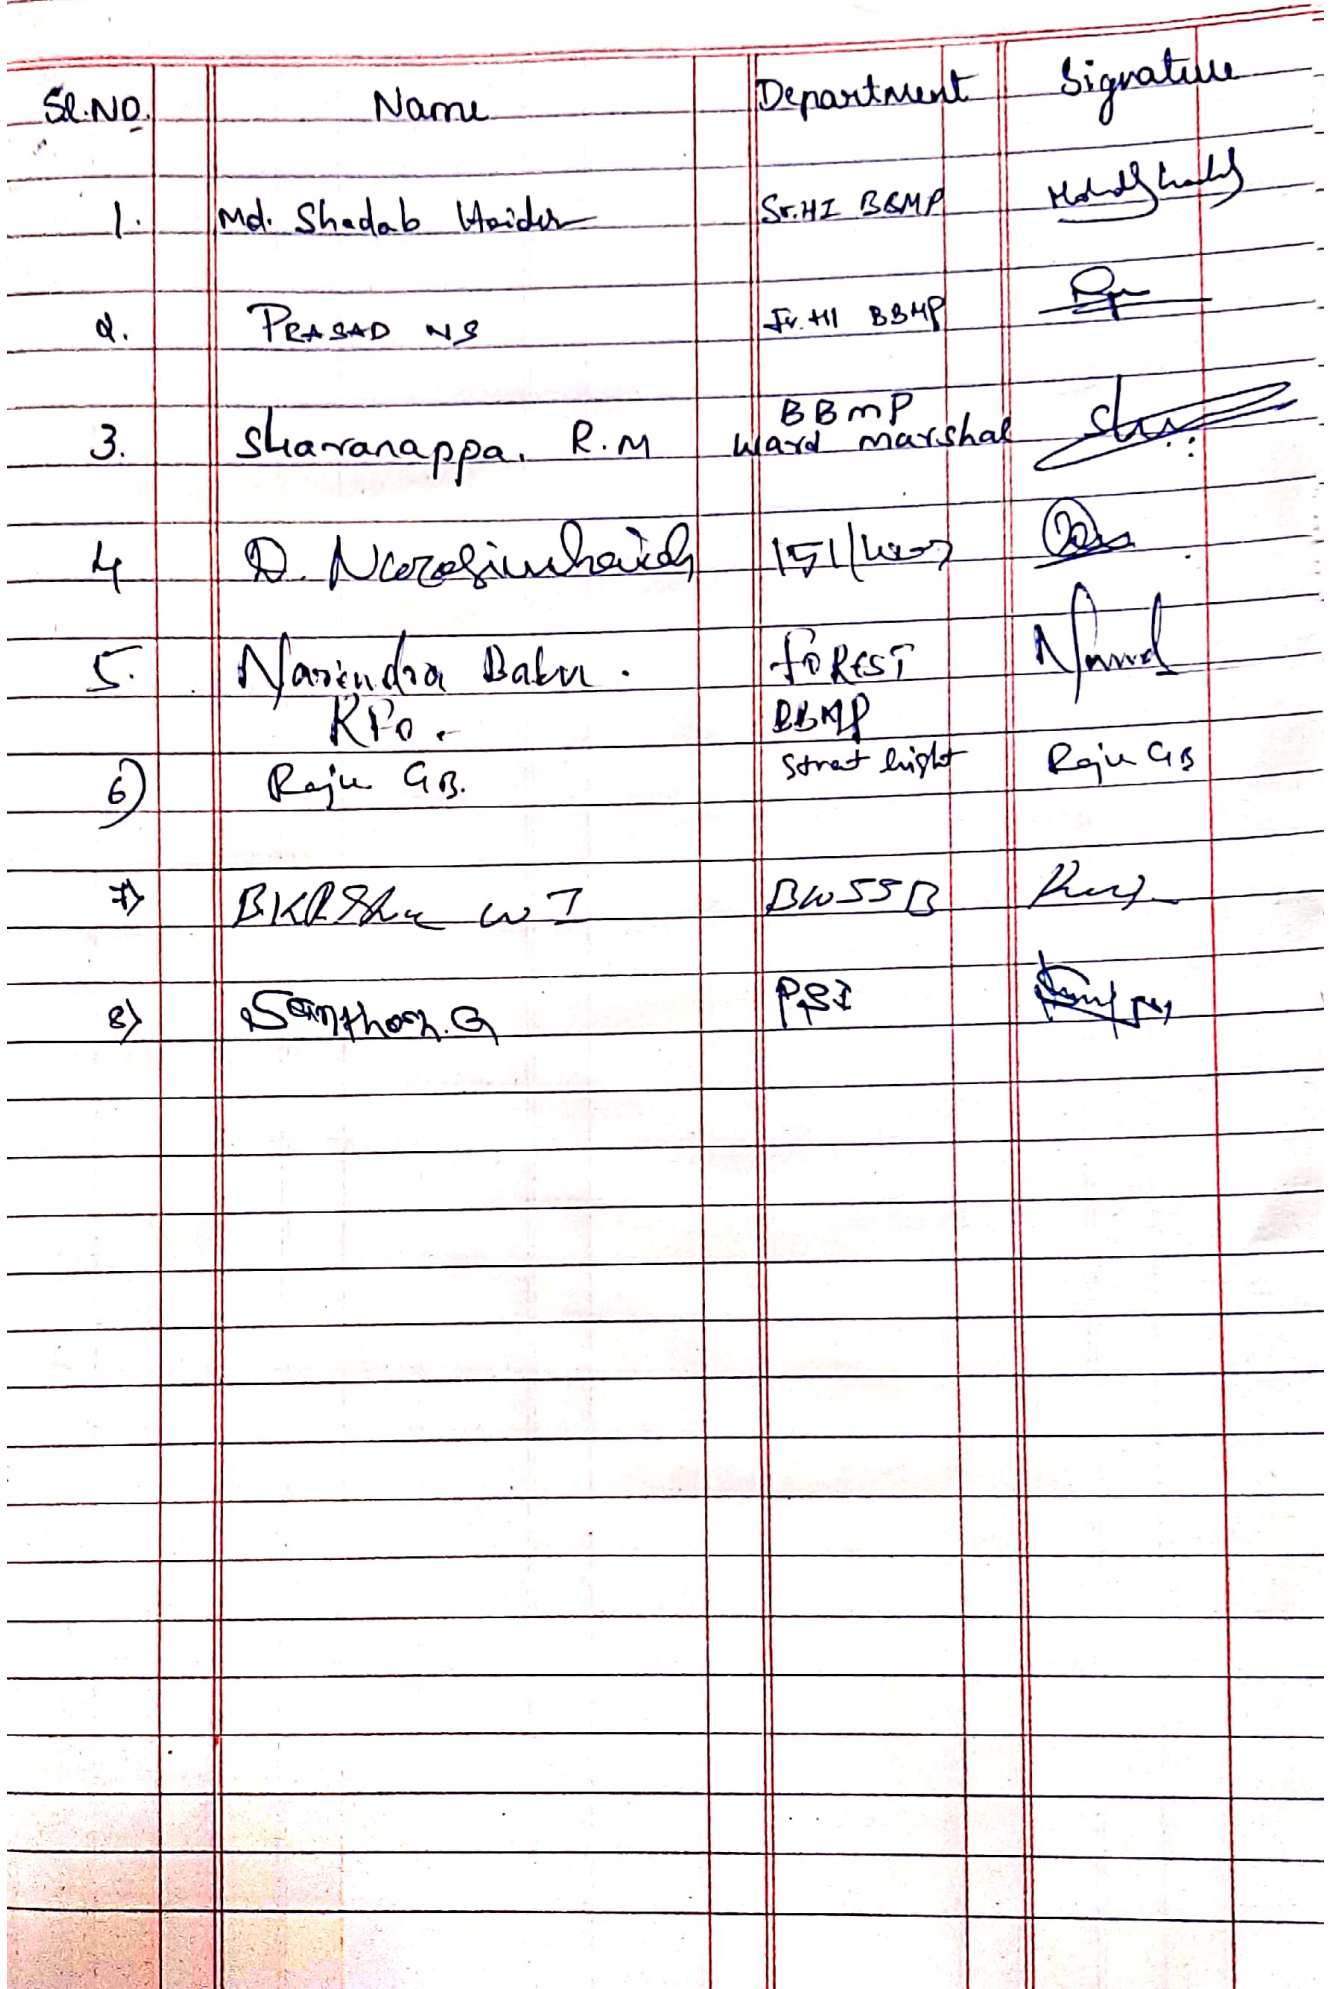 Sl.No. Name Department Signature
1. Md. Shadab Haider Sr.HI BBMP
2. PRASAD NS Jr. HI BBMP
BBMP
3. Sharanappa. R.M ward marshal
4 D. Narasimhaiah 151/
5. Narendra Babu. FOREST
RFO. BBMP
6) Raju GB. Street light Raju GB
7) W I BWSSB
8) Santhosh. G PSI